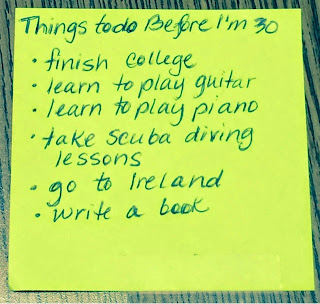 Things to do Before I'm 30
• finish college
• learn to play guitar
• learn to play piano
• take scuba diving
lessons
• go to Ireland
• write a book